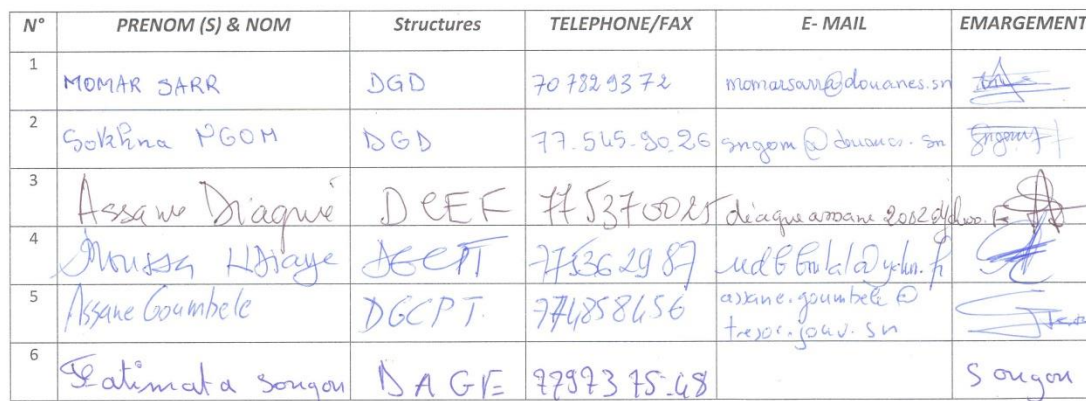 N° PRENOM (S) & NOM Structures TELEPHONE/FAX E- MAIL EMARGEMENT
1 MOMAR SARR DGD 70 782 93 72 momarsarr@douanes.sn
2 Sokhna NGOM DGD 77.545.90.26 sngom@douanes.sn
3 Assane Diagne DCEF 775370025
4 Moussa Ndiaye DGCPT 775362987
5 Assane Goumbele DGCPT. 774858456 assane.goumbele@
tresor.gouv.sn
6 Fatimata Sougou DAGE 77973 75-48 Sougou